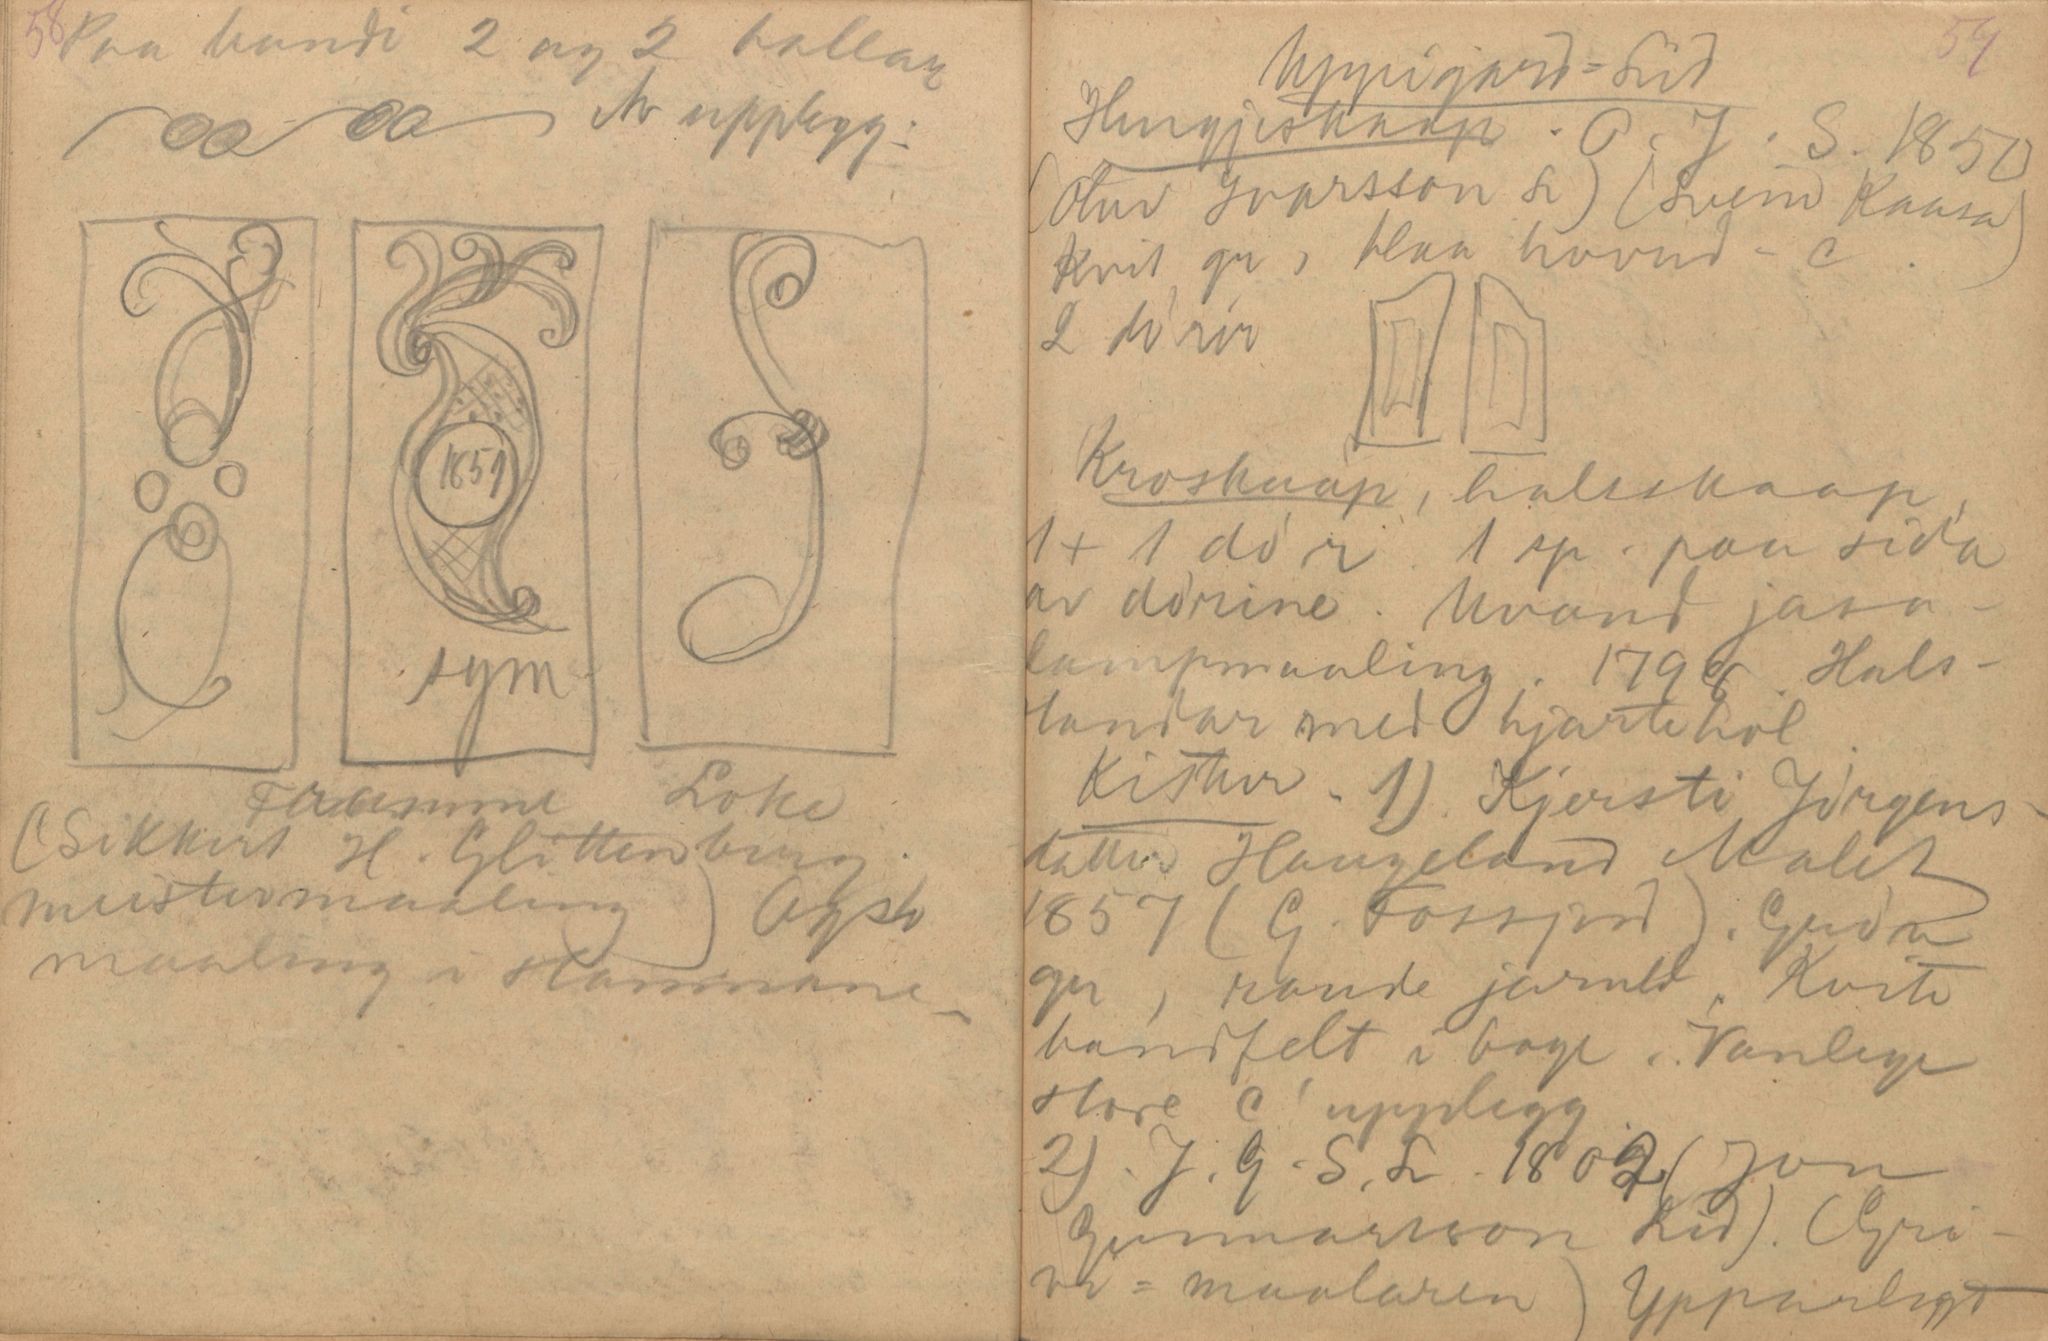 58
Paa bandi 2 og 2 ballar
Av upplegg:
1859
sym
Framme Loke
(Sikkert H. Glittenberg
meistermaaling) Ogso
maaling i stammane
59
Uppigard=Lid
Hengjeskaap. O. J. S. 1850
(Olav Ivarsson Li) (Svein Kaasa)
Kvit gr, blaa hovud-C.
2 dórir
Kroskaap, halsskaap,
1+1 dór. 1 sp. paa sida
av dórine. Uvand jasa-
lampmaaling. 1798. Hals-
standar med hjartehol
Kistur. 1) Kjersti Jórgens-
datter Haugeland Malet
1857 (G. Fossjord). Gródn
gr, raude jarnbd, Kvite
bandfelt i boge. Vanlege
store C upplegg.
2). J. G. S. Li. 1802 (Jon
Gunnarsson Lid). (Gri-
ve=maalaren) Ypparlegt